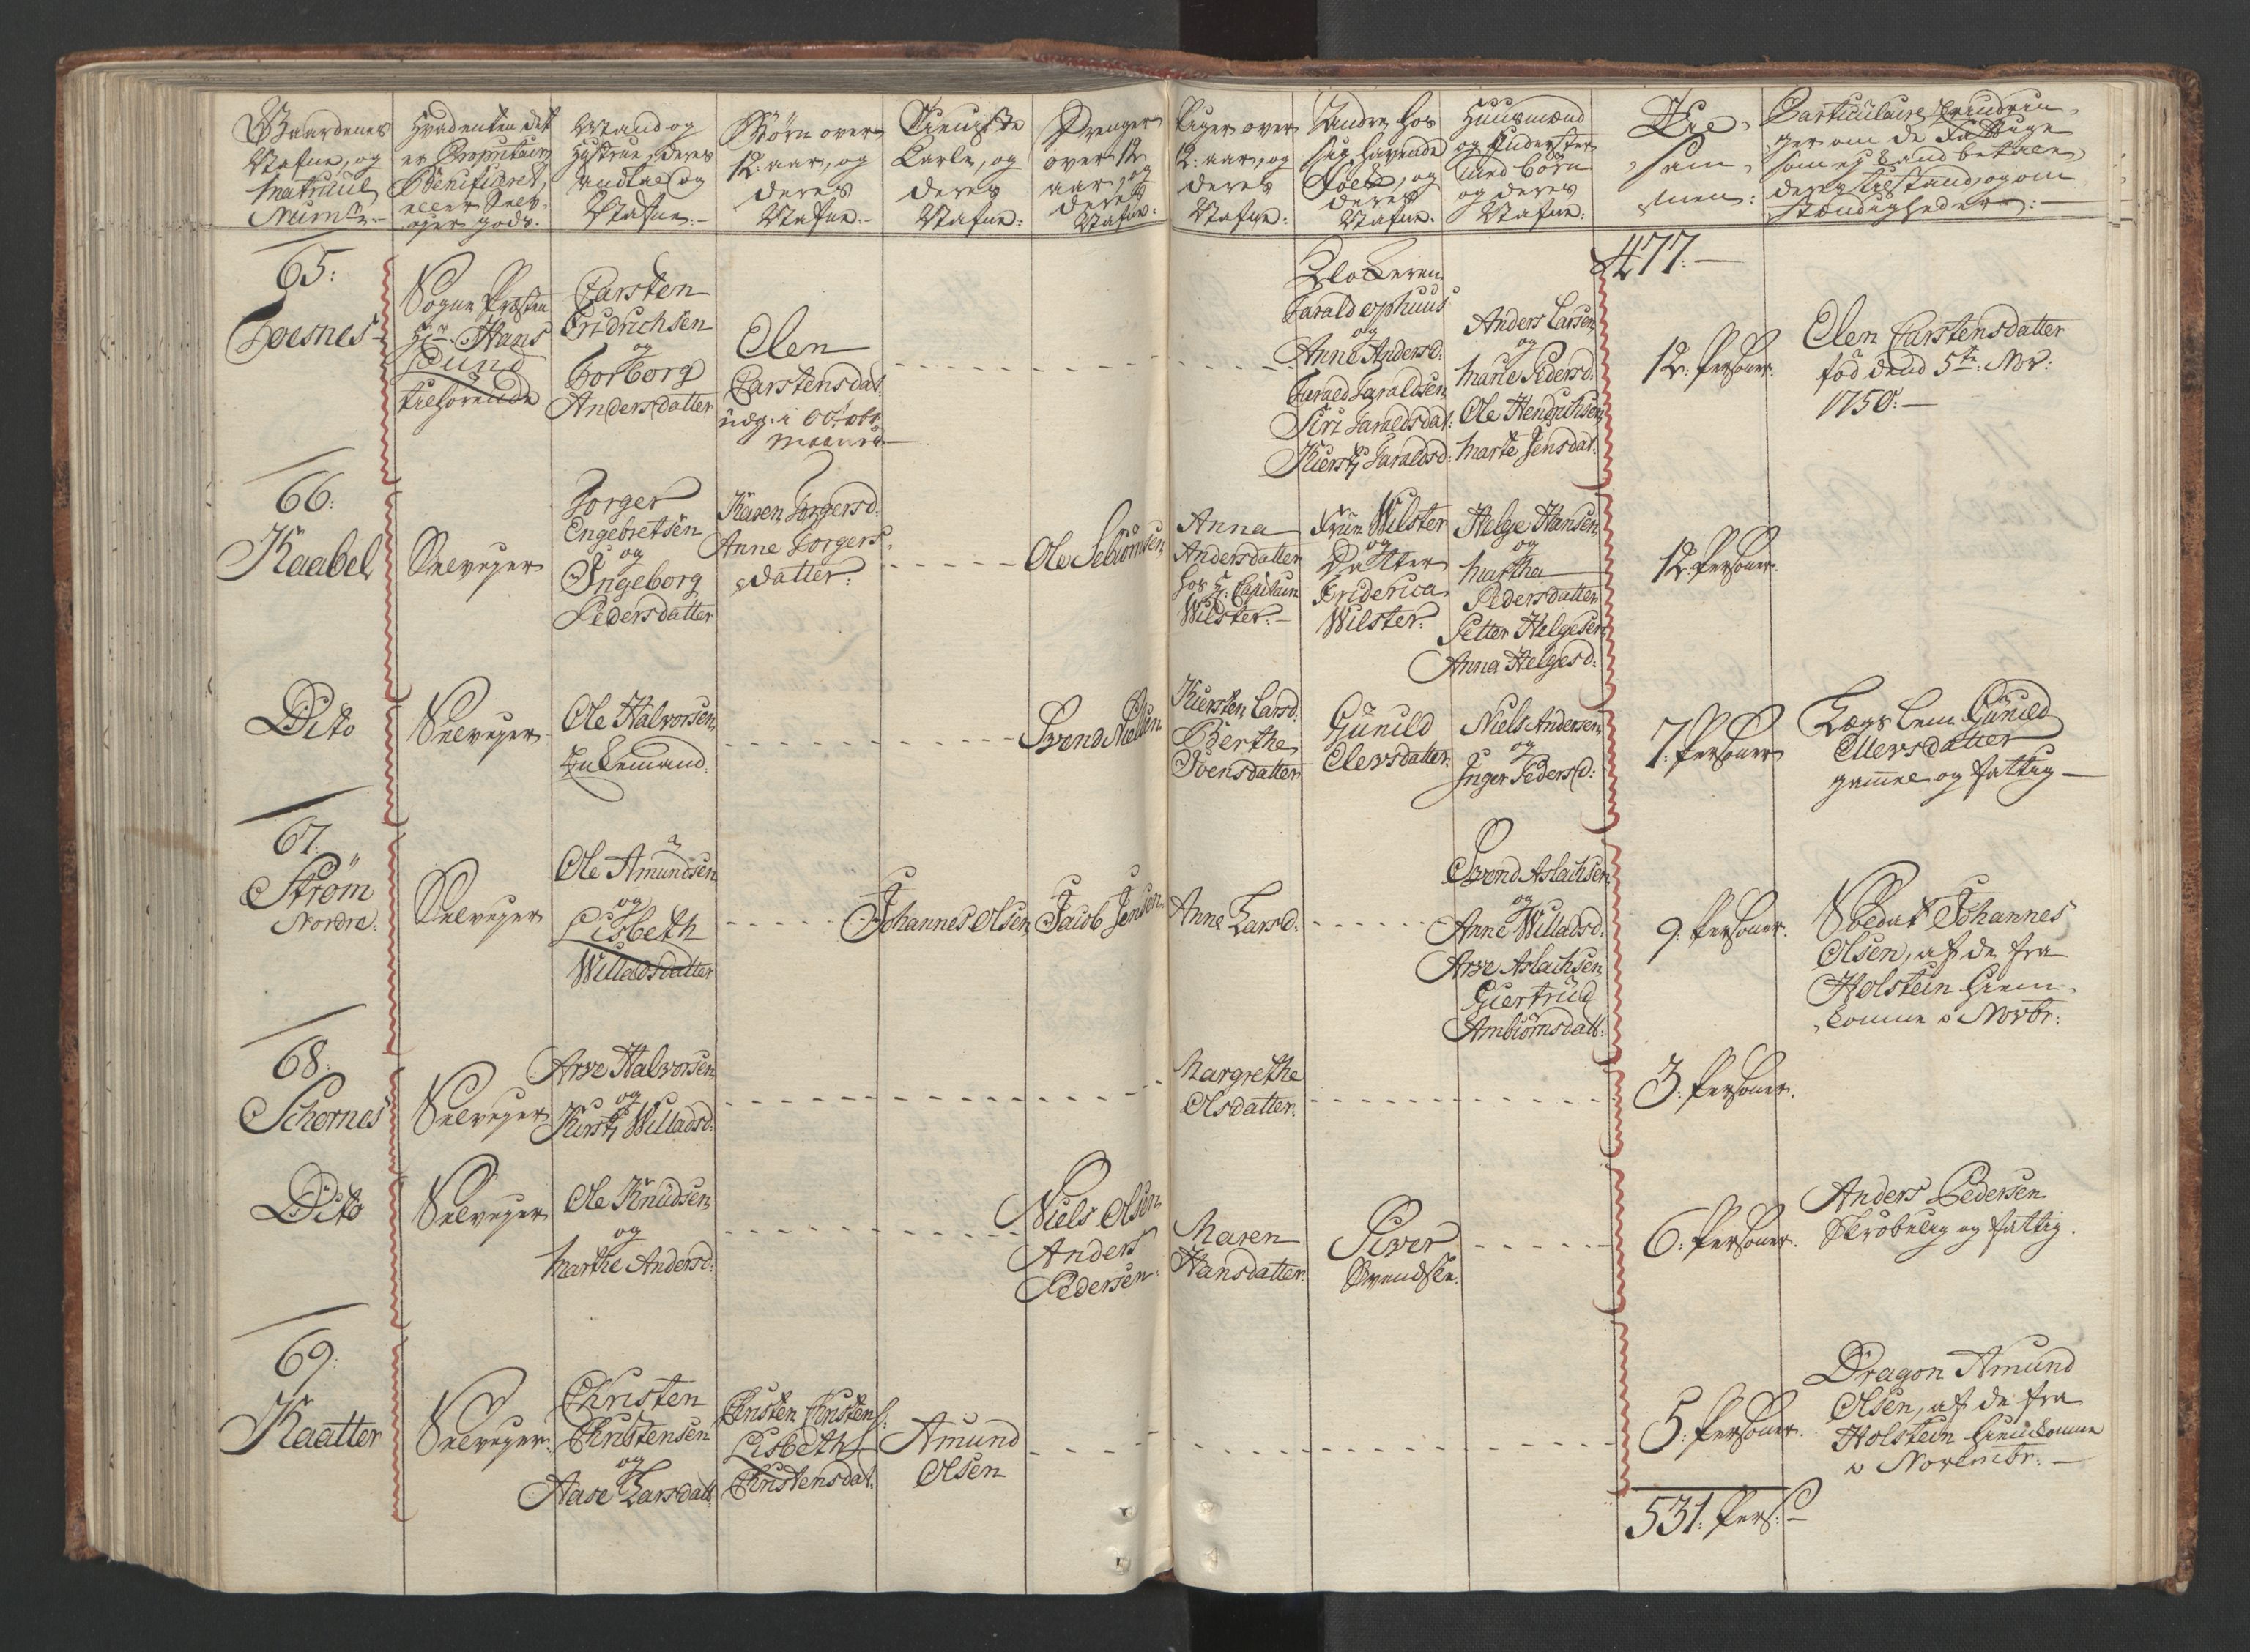 Gaardenes
Nafne, og
Matricul
Num:r
Hvadenten det
er Propritair,
Beneficeret,
eller Selv-
ejer gods.
Mand og
Hustrue, deres
Andtal og
Nafne.
Børn over
12: aar, og
deres
Nafne.
Tieniste
Karle, og
deres
Nafne:
Drenger
over 12
aar, og
deres
Nafne:
Piger over
12: aar, og
deres
Nafne:
Andre hos
sig havende
Folk, og
deres
Nafne.
Huusmænd
og Inderster
med børn
og deres
Nafne:
Til-
sam-
men:
Particulaire Erindrin-
ger om de Fattige
som ej kand betale,
deres tilstand, og om
stændigheder:
477:
65:
Foesnes
Sogne Præsten
Hr: Hans
Lund
tilhørende
Carsten
Fridrichsen
og
Torborg
Andersdatter
Elen
Carstensdat:
udg: i Octobr
maaned
Klokeren
Harald ophuus
og
Anne Andersd:
Harald Haraldsen
Siri Haraldsdat:
Kiersti Haraldsd:
Anders Larsen
og
Marie Pedersd:
Ole Hendrichsen
Marte Jensdat:
12: Personer.
Elen Carstensdatter
fød dend 5te: Nov:
1750:
66:
Kaabel
Selvejer
Torger
Engebretsen
og
Ingeborg
Pedersdatter
Karen Torgersd:
Anne Torgers
datter:
Ole Sebiørnsen
Anna
Andersdatter
hos H: Capitain
Wilster.
Frue Wilster
og
Datter
Friderica
Wilster.
Helge Hansen
og
Martha
Pedersdatter
Petter Helgesen
Anna Helgesd:
12. Personer.
Dito
Selvejer
Ole Halvorsen
Enkemand:
Svend Nielsen
Kiersten Larsd:
Berthe
Svensdatter
Gunild
Elersdatter.
Niels Andersen
og
Inger Pedersd:
7: Personer
Lægs lem Gunild
Ellersdatter
gammel og fattig
67:
Strøm
Nordre.
Selvejer
Ole Amundsen
og
Lisbeth
Willadsdatter
Johannes Olsen
Jacob Jensen
Anne Larsd:
Svend Aslachsen
og
Anne Willadsd:
Arve Aslachsen
Giertrud
Ambiørnsdatt:
9: Personer.
Soldat Johannes
Olsen, af de fra
Holstein hiem-
komne i Novbr:
68:
Schornes
Selvejer
Arve Halvorsen
og
Kirsti Willadsd:
Margrethe
Olsdatter:
3: Personer.
Dito
Selvejer
Ole Knudsen
og
Marthe Andersd:
Niels Olsen
Anders
Pedersen
Maren
Hansdatter
Siver
Svendsen.
6: Personer.
Anders Pedersen
Skrøbelig og fattig.
69:
Kaatter
Selvejer
Christen
Christensen
og
Aase Larsdatt:
Christen Christens:
Lisbeth
Christensdat:
Amund
Olsen
5: Personer.
Dragon Amund
Olsen, af de fra
Holstein hiemkomne
i Novembr:
531: Pers: